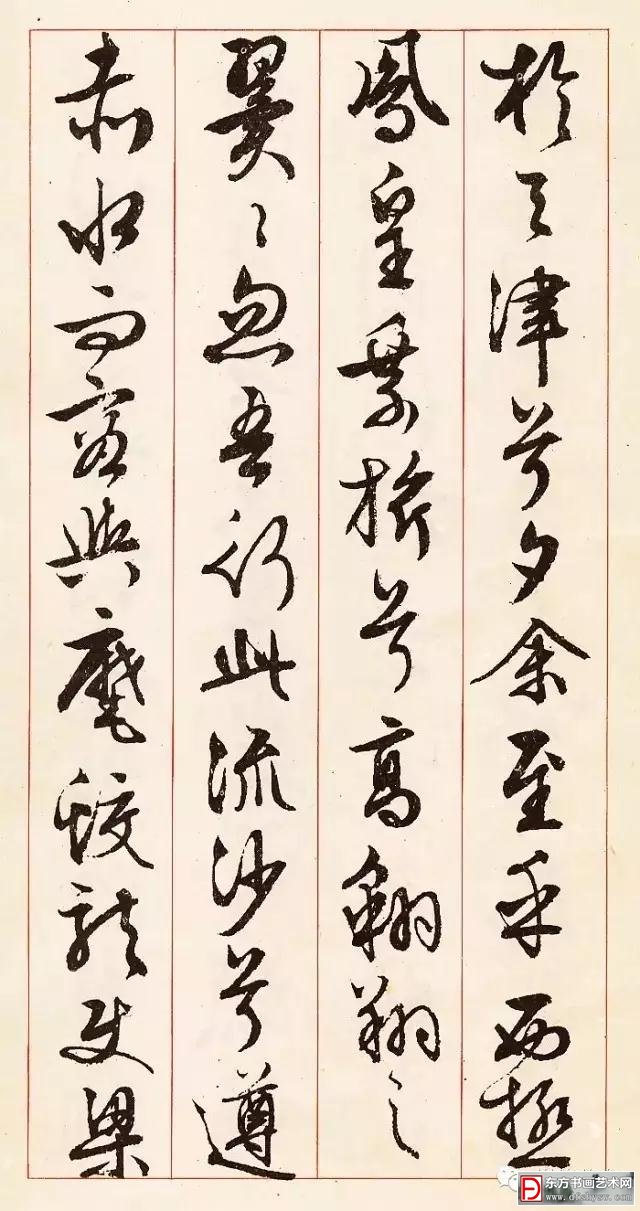 於天津兮夕余至乎西極
鳳皇旂兮高翱翔之
翼々忽吾行此流沙兮遵
赤水而容與麾蛟龍使梁
东方书画艺术网